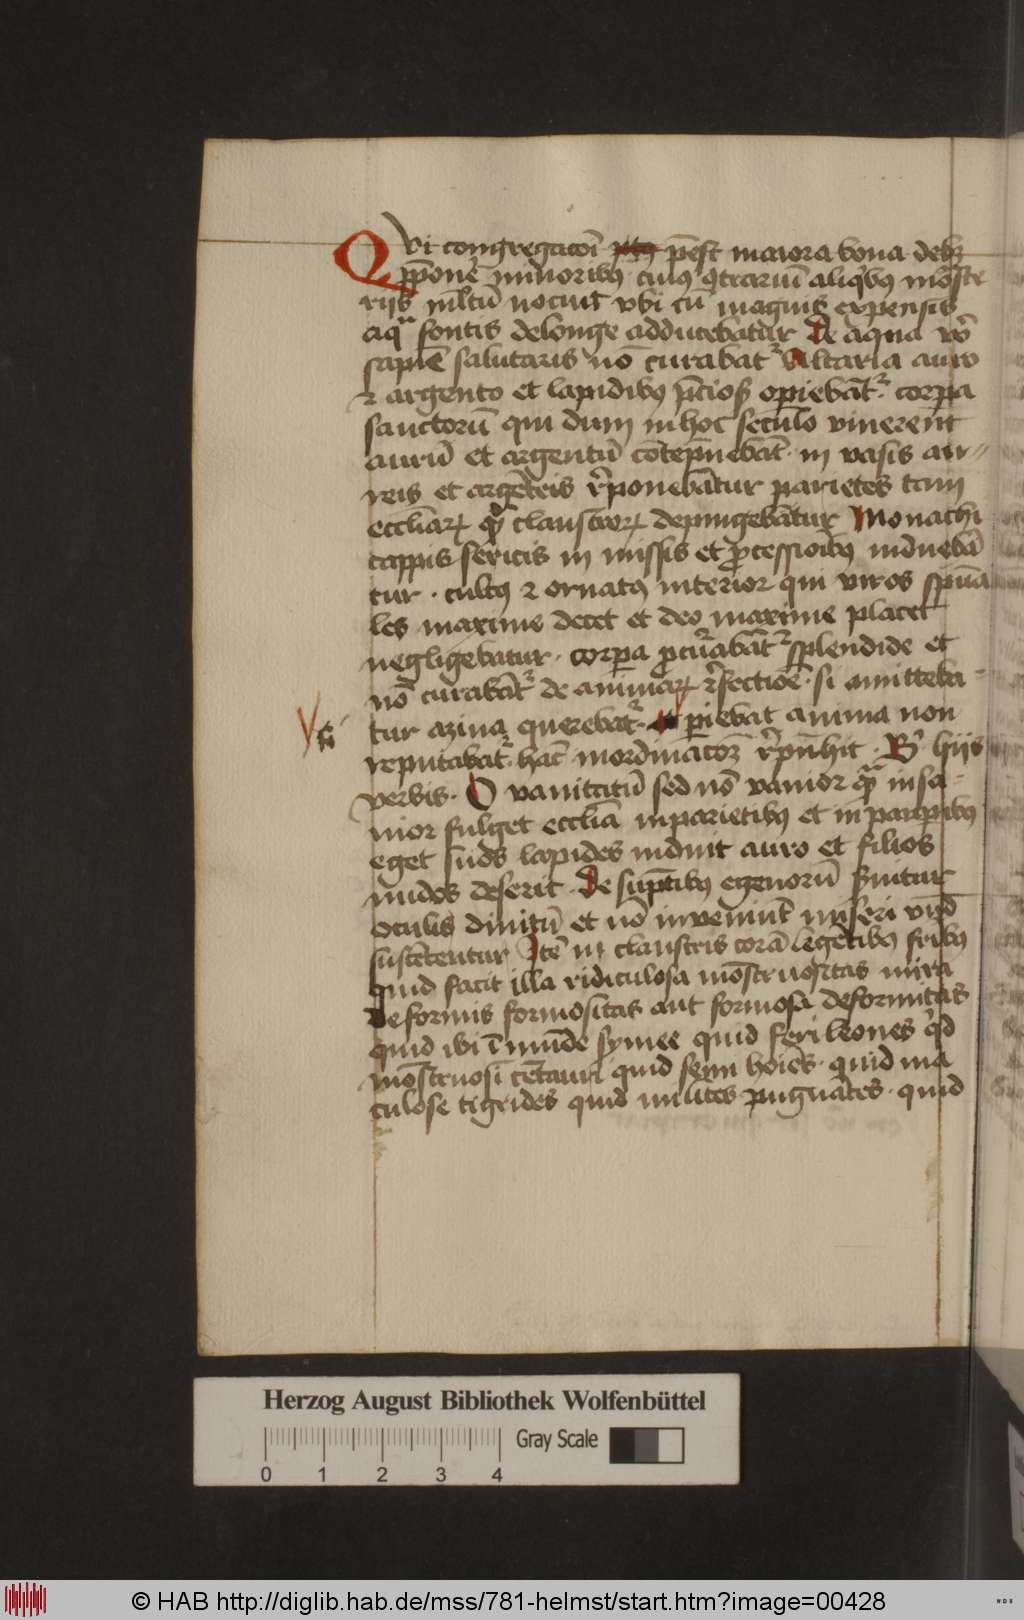 Qvi congregacōi p̄est maiora bona debꝫ
p̄ponē minoribꝯ cuiꝯ ꝯtrariū aliqͥbꝯ mōste
rijs ml̄tū nocuit vbi cū magnis expensis
aqᷓ fontis delonge adducebatur De aqua vͦo
sapiē salutaris nō curabatᷣ Altaria auro
⁊ argento et lapidibꝯ p̄cios̄ opiebāt᷑ corpa
sanctorū qui dum in hoc seculo viuerent
aurū et argentū cōtēpnebāt in vasis au
reis et argēteis r̄ponebātur parietes tam
eccliaꝝ qᷓ claustroꝝ depingebātur Monachi
cappis sericis in missis et ꝓcessioībꝯ induebā
tur cultꝯ ⁊ ornatꝯ interior qui viros spiūa
les maxime decet et deo maxime placet
negligebatur corpa ꝓcurabāt᷑ splendide et
nō curabāt᷑ de animaꝝ r̄fectiōe si amitteba
tur azina querebat᷑ piebat anima non
reputabat᷑ hāc inordinacōꝫ r̄pn̄hīt Bͬ hijs
verbis O vanitatū sed nō vanior qᷓ insa
nior fulget ecclīa in parietibꝯ et in paupibꝯ
eget suos lapides induit auro et filios
nudos deserit De sūptibꝯ egenorū s̄uitur
oculis diuitū et nō inveniūt miseri vn̄d
sustētentur Itē in claustris corā legētibꝯ fr̄ibꝯ
quid facit illa ridiculosa mōstruositas mira
deformis formositas aut formosa deformitas
quid ibi īmūde symee quid feri leones qͥd
mōstruosi cētauri quid semi hoīes quid ma
culose tigrides quid milites pugnātes quid
Herzog August Bibliothek Wolfenbüttel
Gray Scale
0 1 2 3 4
© HAB http://diglib.hab.de/mss/781-helmst/start.htm?image=00428